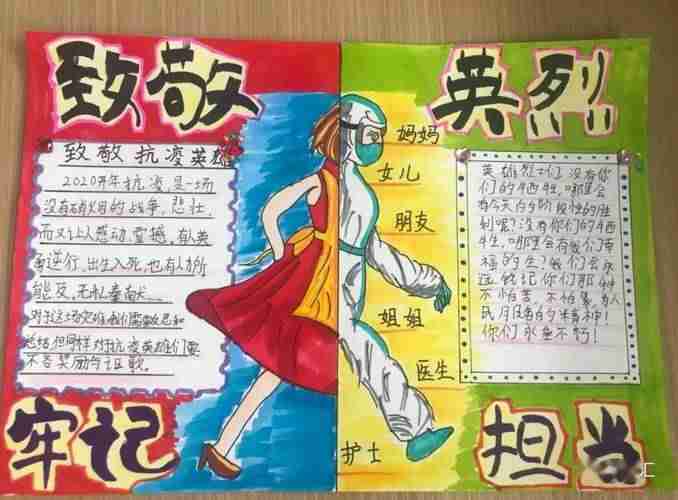 致敬
致敬抗疫英雄
2020开年抗疫是一场
没有硝烟的战争,悲壮,
而又让人感动、震撼,有人英
勇逆行,出生入死,也有人力所
能及,无私奉献
对于这场灾难我们需要反思和
总结,但同样对抗疫英雄们要
不吝奖励与讴歌。
牢记
妈妈
女儿
朋友
姐姐
医生
护士
英烈
英雄烈士们没有你
们的牺牲,哪里会
有今天的阶段性的胜
利呢?没有你们的牺
牲,哪里会有我们幸
福的生?我们会永
远铭记你们那种
不怕苦、不怕累、为人
民服务的精神!
你们永垂不朽!
担当
汇